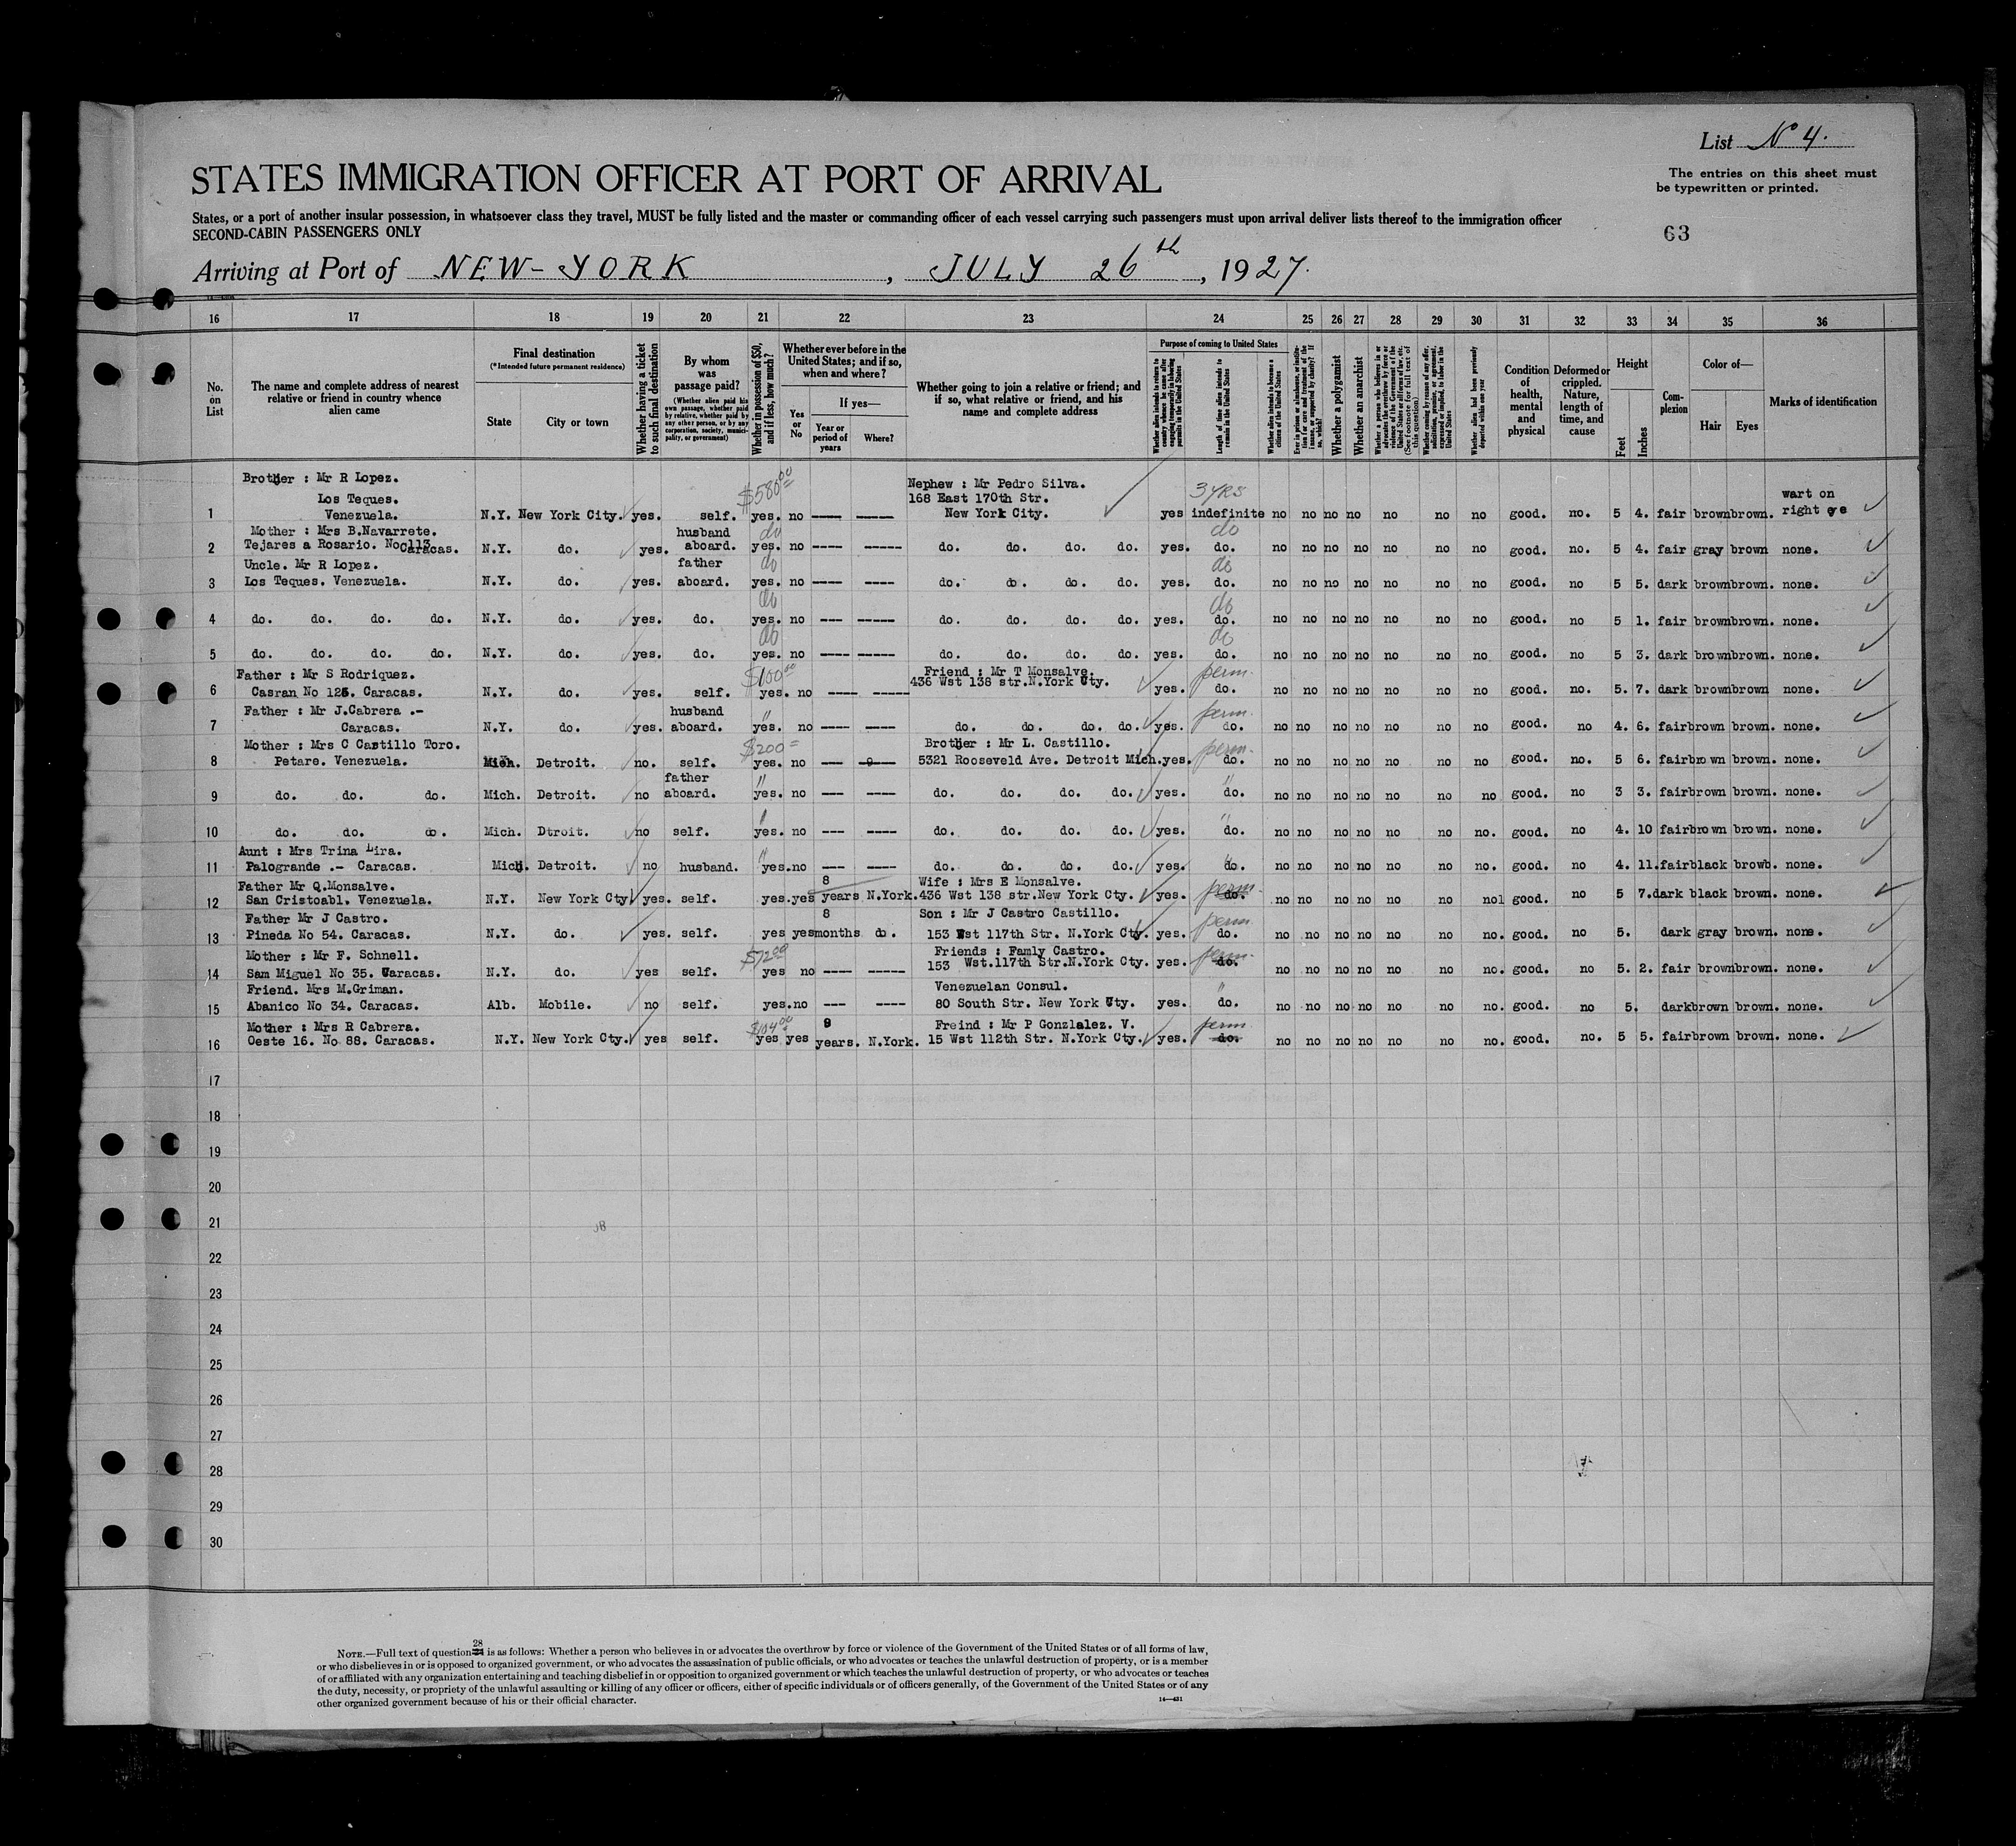 List No 4.
STATES IMMIGRATION OFFICER AT PORT OF ARRIVAL
The entries on this sheet must
be typewritten or printed.
States, or a port of another insular possession, in whatsoever class they travel, MUST be fully listed and the master or commanding officer of each vessel carrying such passengers must upon arrival deliver lists thereof to the immigration officer
SECOND-CABIN PASSENGERS ONLY
63
Arriving at Port of NEW-YORK, JULY 26th, 1927.
16 17 18 19 20 21 22 23 24 25 26 27 28 29 30 31 32 33 34 35 36
No. on List
The name and complete address of nearest relative or friend in country whence alien came
Final destination
(*Intended future permanent residence)
State
City or town
Whether having a ticket to such final destination
By whom was passage paid?
(Whether alien paid his own passage, whether paid by relative, whether paid by any other person, or by any corporation, society, municipality, or government)
Whether in possession of $50, and if less, how much?
Whether ever before in the United States; and if so, when and where?
Yes or No
If yes—
Year or period of years
Where?
Whether going to join a relative or friend; and if so, what relative or friend, and his name and complete address
Purpose of coming to United States
Whether alien intends to return to country whence he came after engaging temporarily in laboring pursuits in the United States
Length of time alien intends to remain in the United States
Whether alien intends to become a citizen of the United States
Ever in prison or almshouse, or institution for care and treatment of the insane, or supported by charity? If so, which?
Whether a polygamist
Whether an anarchist
(See footnote for full text of this question)
Whether coming by reason of any offer, solicitation, promise, or agreement, expressed or implied, to labor in the United States
Whether alien had been previously deported within one year
Condition of health, mental and physical
Deformed or crippled. Nature, length of time, and cause
Height
Feet
Inches
Complexion
Color of—
Hair
Eyes
Marks of identification
Brother : Mr R Lopez.
Los Teques.
1 Venezuela. N.Y. New York City. yes. self. $580.00 yes. no ---- ----- Nephew : Mr Pedro Silva. 168 East 170th Str. New York City. yes 3 yrs indefinite no no no no no no no good. no. 5 4. fair brown brown. wart on right eye
Mother : Mrs B.Navarrete.
2 Tejares a Rosario. No 113 Caracas. N.Y. do. yes. husband aboard. do yes. no ---- ----- do. do. do. do. yes. do do. no no no no no no no good. no. 5 4. fair gray brown none.
Uncle. Mr R Lopez.
3 Los Teques. Venezuela. N.Y. do. yes. father aboard. do yes. no ---- ---- do. do. do. do. yes. do do. no no no no no no no good. no 5 5. dark brown brown. none.
4 do. do. do. do. N.Y. do. yes. do. do yes. no --- ----- do. do. do. do. yes. do do. no no no no no no no good. no 5 1. fair brown brown. none.
5 do. do. do. do. N.Y. do. yes. do. do yes. no ---- ----- do. do. do. do. yes. do do. no no no no no no no good. no 5 3. dark brown brown. none.
Father : Mr S Rodriquez.
6 Casran No 125. Caracas. N.Y. do. yes. self. $100.00 yes. no ---- ----- Friend : Mr T Monsalve. 436 Wst 138 str.N.York Cty. yes. perm. do. no no no no no no no good. no. 5. 7. dark brown brown none.
Father : Mr J.Cabrera .-
7 Caracas. N.Y. do. yes. husband aboard. " yes. no ---- ---- do. do. do. do. yes. perm. do. no no no no no no no good. no 4. 6. fair brown brown. none.
Mother : Mrs C Castillo Toro.
8 Petare. Venezuela. Mich. Detroit. no. self. $200= yes. no --- ---- Brother : Mr L. Castillo. 5321 Rooseveld Ave. Detroit Mich. yes. perm. do. no no no no no no no good. no. 5 6. fair brown brown. none.
9 do. do. do. Mich. Detroit. no father aboard. " yes. no --- ---- do. do. do. do. yes. " do. no no no no no no no good. no 3 3. fair brown brown. none.
10 do. do. do. Mich. Dtroit. no self. " yes. no --- ---- do. do. do. do. yes. " do. no no no no no no no. good. no 4. 10 fair brown brown. none.
Aunt : Mrs Trina Lira.
11 Palogrande .- Caracas. Mich. Detroit. no husband. " yes. no --- ---- do. do. do. do. yes. do. no no no no no no no. good. no 4. 11. fair black browb. none.
Father Mr Q.Monsalve.
12 San Cristoabl. Venezuela. N.Y. New York Cty yes. self. yes. yes 8 years N.York. Wife : Mrs E Monsalve. 436 Wst 138 str.New York Cty. yes. perm. do. no no no no no no no good. no 5 7. dark black brown. none.
Father Mr J Castro.
13 Pineda No 54. Caracas. N.Y. do. yes. self. yes yes 8 months do. Son : Mr J Castro Castillo. 153 Wst 117th Str. N.York Cty. yes. perm do. no no no no no no no. good. no 5. dark gray brown. none.
Mother : Mr F. Schnell.
14 Sam Miguel No 35. Caracas. N.Y. do. yes self. yes no ---- ----- Friends : Famly Castro. 153 Wst.117th Str.N.York Cty. yes. perm. do. no no no no no no no. good. no 5. 2. fair brown brown. none.
Friend. Mrs M.Griman.
15 Abanico No 34. Caracas. Alb. Mobile. no self. yes. no --- ---- Venezuelan Consul. 80 South Str. New York Cty. yes. " do. no no no no no no no. good. no 5. dark brown brown. none.
Mother : Mrs R Cabrera.
16 Oeste 16. No 88. Caracas. N.Y. New York Cty. yes self. $104.00 yes yes 9 years. N.York. Freind : Mr P Gonzlalez. V. 15 Wst 112th Str. N.York Cty. yes. perm do. no no no no no no no. good. no. 5 5. fair brown brown. none.
17
18
19
20
21
22
23
24
25
26
27
28
29
30
NOTE.—Full text of question 28 is as follows: Whether a person who believes in or advocates the overthrow by force or violence of the Government of the United States or of all forms of law,
or who disbelieves in or is opposed to organized government, or who advocates the assassination of public officials, or who advocates or teaches the unlawful destruction of property, or is a member
of or affiliated with any organization entertaining and teaching disbelief in or opposition to organized government or which teaches the unlawful destruction of property, or who advocates or teaches
the duty, necessity, or propriety of the unlawful assaulting or killing of any officer or officers, either of specific individuals or of officers generally, of the Government of the United States or of any
other organized government because of his or their official character.
14—431